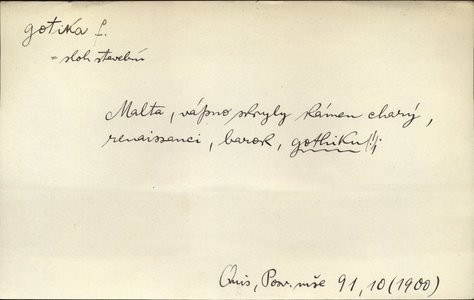 gotika f.
= sloh stavební
Malta, vápno skryly kámen charý,
renaissanci, barok, gothiku!!;
Quis, Posv. mše 91, 10 (1900)